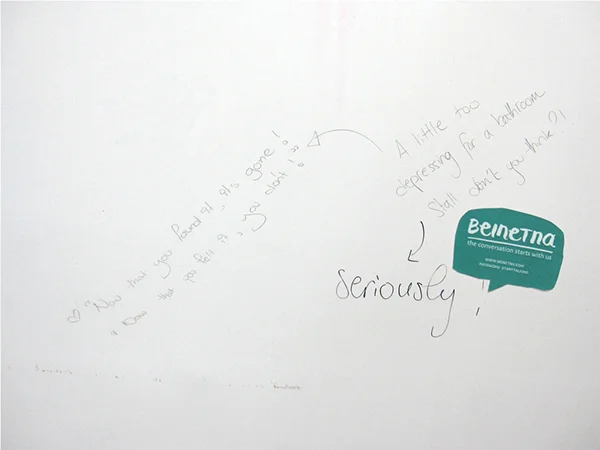 "Now that you found it, it's gone!
" Now that you feel it, you don't!"
A little too
depressing for a bathroom
Stall don't you think?!
Seriously!
BEINETNA
the conversation starts with us
WWW.BEINETNA.COM